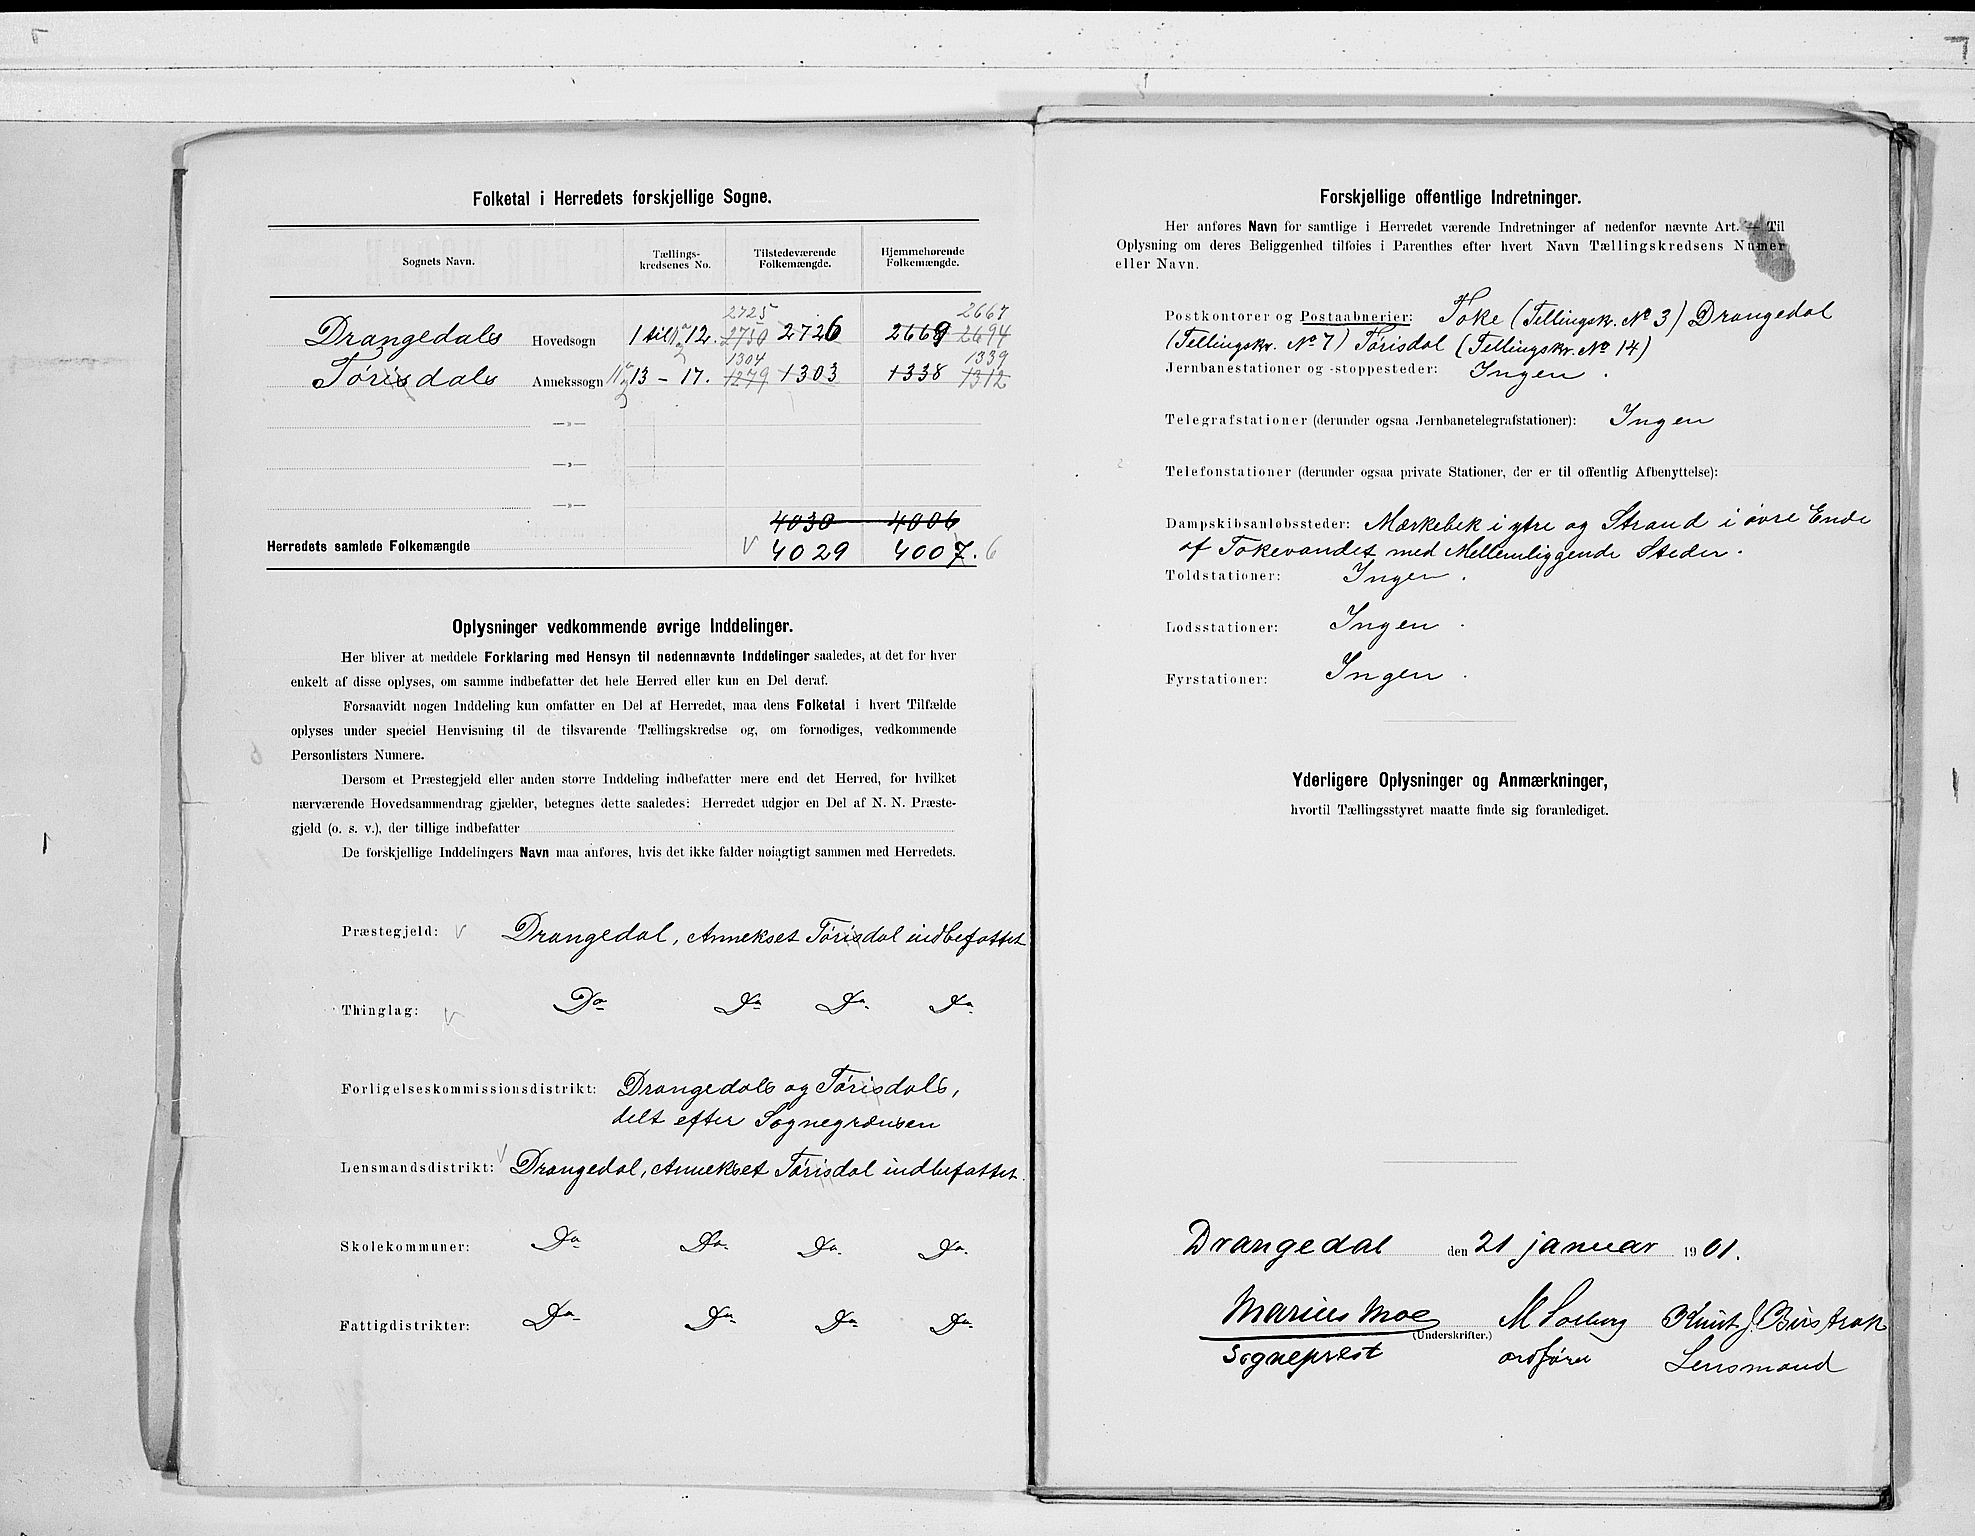 Folketal i Herredets forskjellige Sogne.
Sognets Navn. Tællingskredsenes No. Tilstedeværende Folkemængde. Hjemmehørende Folkemængde.
2725 2667
Drangedals Hovedsogn 1 til 12. 2750 2726 2669 2694
1304 1339
Tørisdals Annekssogn 13 - 17. 1279 1303 1338 1312
—»—
—»—
—»—
4030 4006
Herredets samlede Folkemængde V 4029 4007. 6
Oplysninger vedkommende øvrige Inddelinger.
Her bliver at meddele Forklaring med Hensyn til nedennævnte Inddelinger saaledes, at det for hver
enkelt af disse oplyses, om samme indbefatter det hele Herred eller kun en Del deraf.
Forsaavidt nogen Inddeling kun omfatter en Del af Herredet, maa dens Folketal i hvert Tilfælde
oplyses under speciel Henvisning til de tilsvarende Tællingskredse og, om fornødiges, vedkommende
Personlisters Numere.
Dersom et Præstegjeld eller anden større Inddeling indbefatter mere end det Herred, for hvilket
nærværende Hovedsammendrag gjælder, betegnes dette saaledes: Herredet udgjør en Del af N. N. Præste-
gjeld (o. s. v.), der tillige indbefatter
De forskjellige Inddelingers Navn maa anføres, hvis det ikke falder nøiagtigt sammen med Herredets.
Præstegjeld: V Drangedal, Annekset Tørisdal indbefattet
Thinglag: V Do Do Do. Do.
Forligelseskommissionsdistrikt: Drangedals og Tørisdals,
delt efter Sognegrænsen
Lensmandsdistrikt: V Drangedal, Annekset Tørisdal indbefattet.
Skolekommuner: Do Do. Do. Do.
Fattigdistrikter: Do Do. Do. Do.
Forskjellige offentlige Indretninger.
Her anføres Navn for samtlige i Herredet værende Indretninger af nedenfor nævnte Art. — Til
Oplysning om deres Beliggenhed tilføies i Parenthes efter hvert Navn Tællingskredsens Numer
eller Navn.
Postkontorer og Postaabnerier: Toke (Tellingskr. No 3) Drangedal
(Tellingskr. No 7) Tørisdal (Tellingskr. No 14)
Jernbanestationer og -stoppesteder: Ingen.
Telegrafstationer (derunder ogsaa Jernbanetelegrafstationer): Ingen
Telefonstationer (derunder ogsaa private Stationer, der er til offentlig Afbenyttelse):
Dampskibsanløbssteder: Mærkebek i ytre og Strand i øvre Ende
af Tokevandet med Mellemliggende Steder.
Toldstationer: Ingen.
Lodsstationer: Ingen.
Fyrstationer: Ingen.
Yderligere Oplysninger og Anmærkninger,
hvortil Tællingsstyret maatte finde sig foranlediget.
Drangedal den 21 januar 1901.
Marius Moe M Solberg Knut J. Birstrak
(Underskrifter.)
Sogneprest ordfører Lensmand